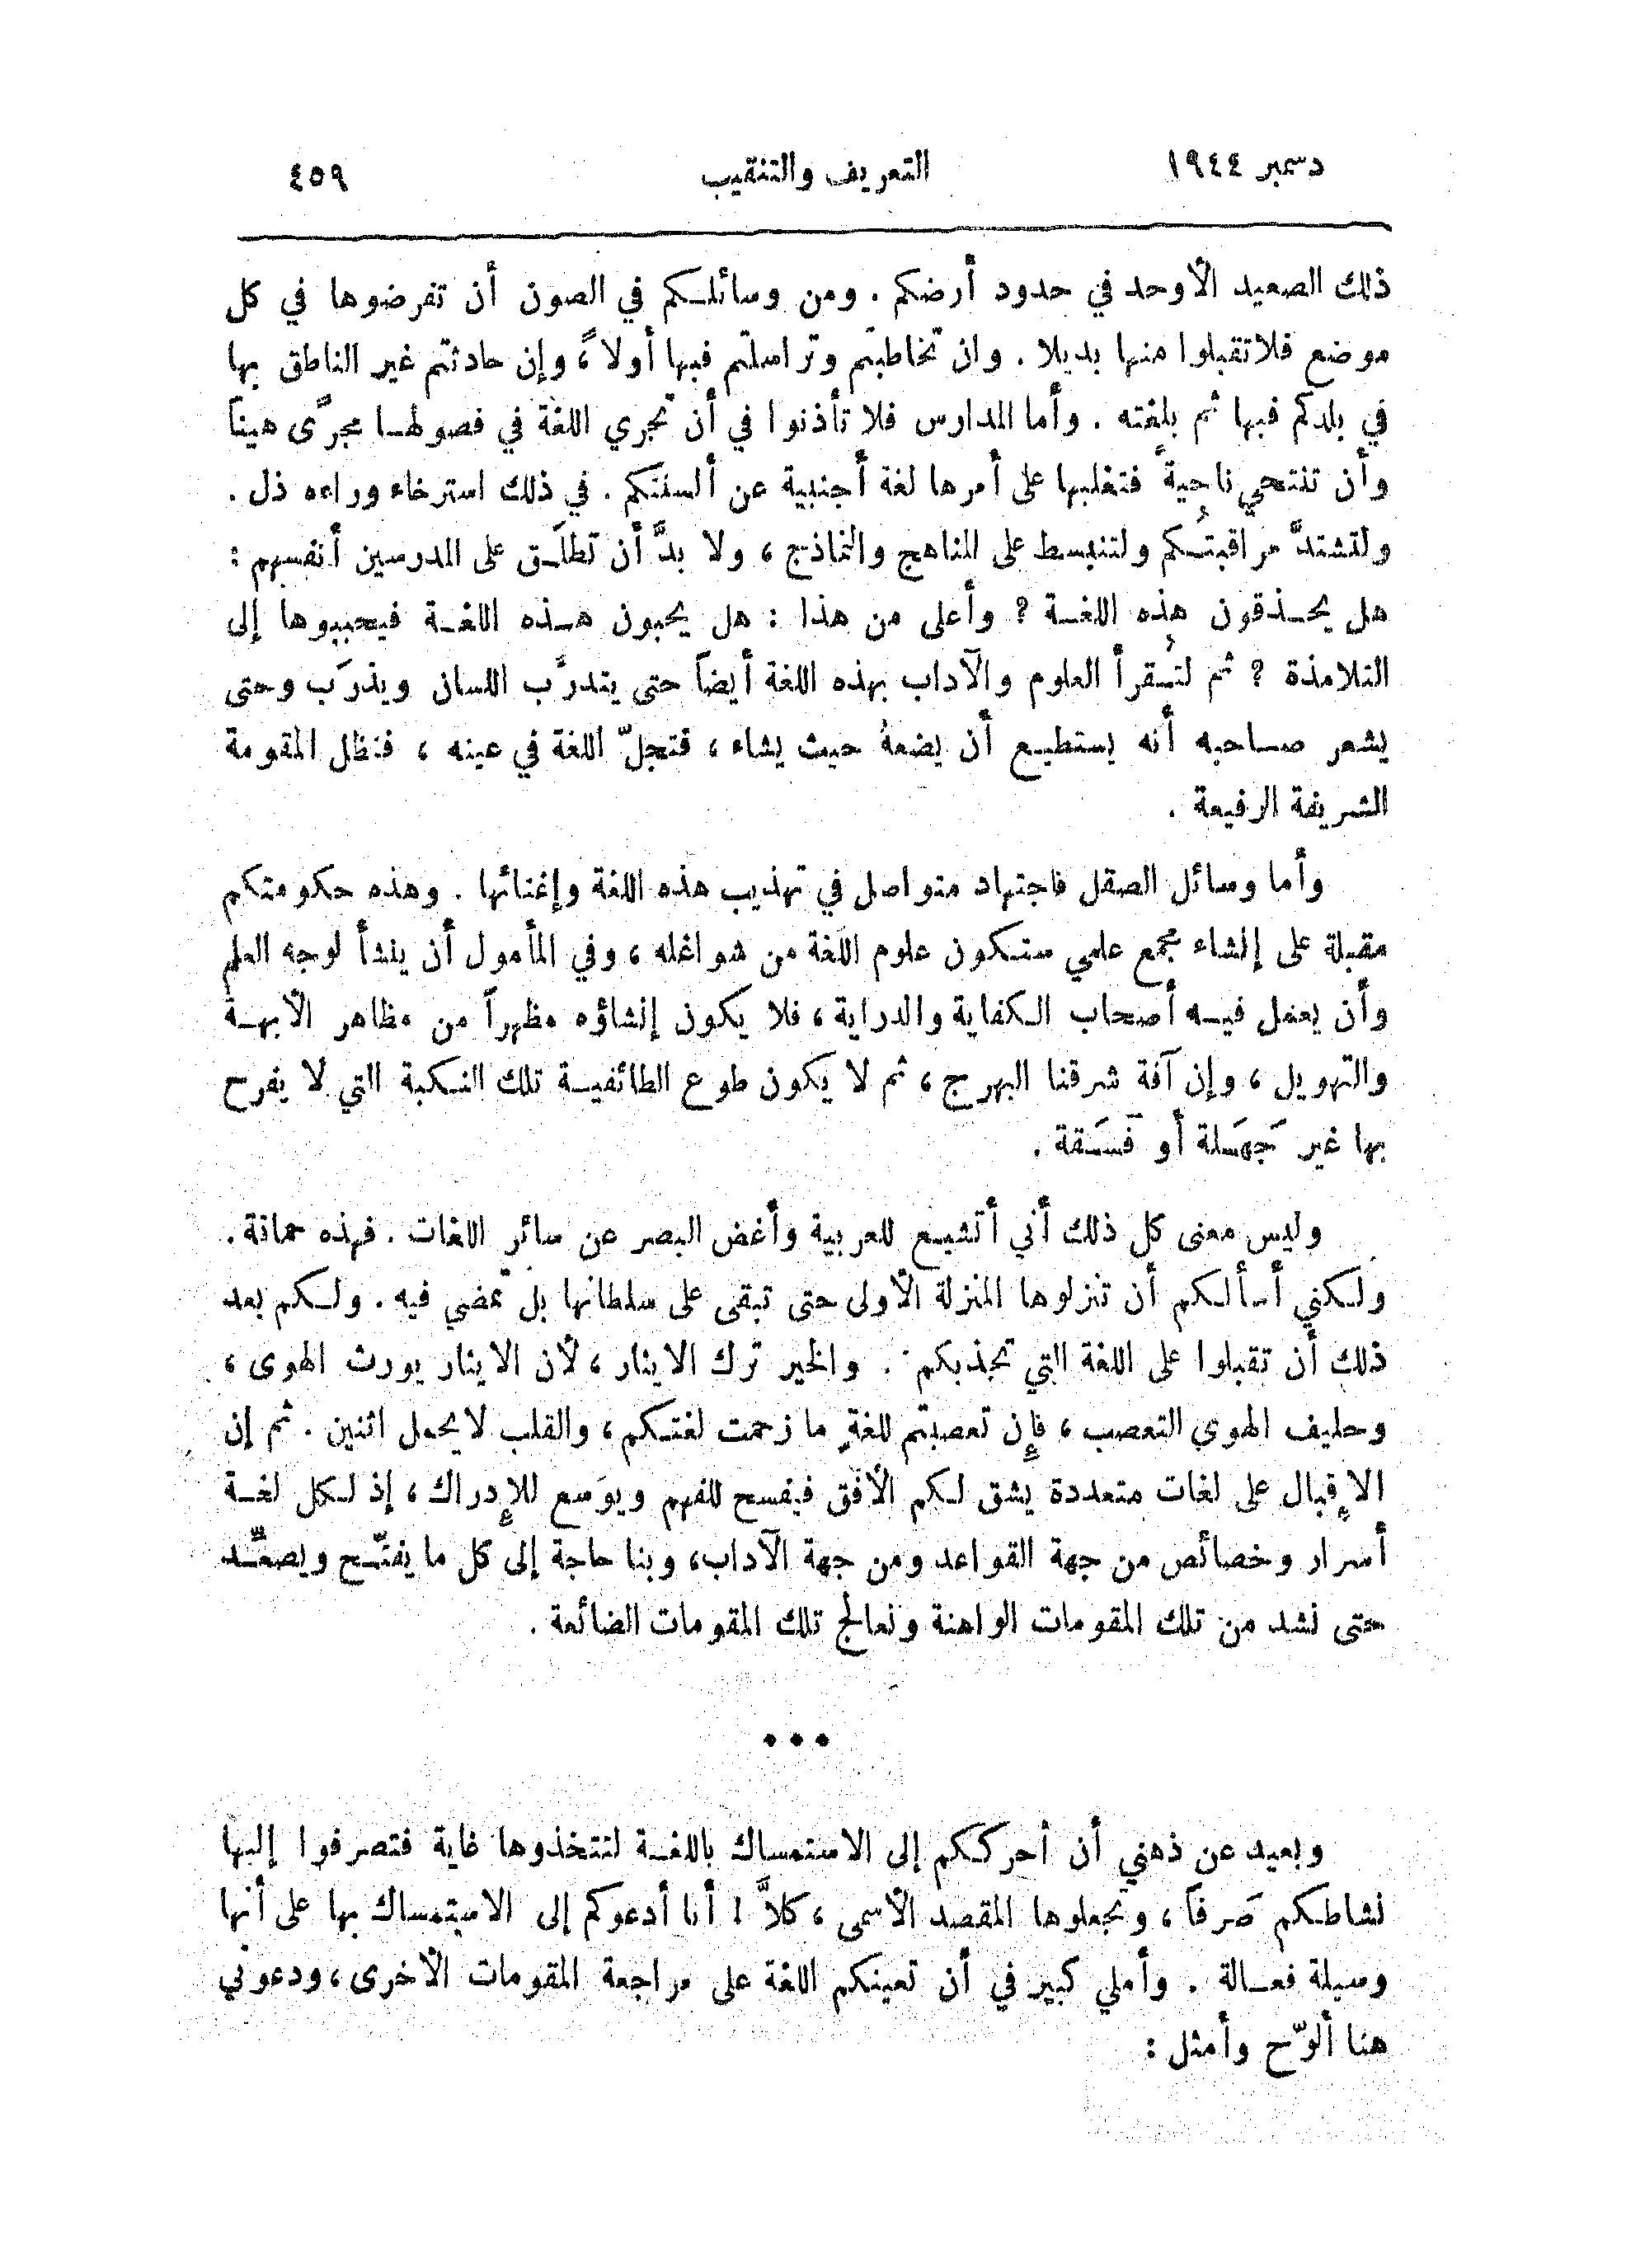 دسمبر ١٩٤٤ التعريف والتنقيب ٤٥٩
ذلك الصعيد الأوحد في حدود أرضكم . ومن وسائلكم في الصون أن تفرضوها في كل
موضع فلا تقبلوا منها بديلا . وان تخاطبتم وتراسلتم فبها أولاً ، وإن حادثتم غير الناطق بها
في بلدكم فبها ثم بلغته . وأما المدارس فلا تأذنوا في أن تجري اللغة في فصولها مجرًى هيناً
وأن تنتحي ناحيةً فتغلبها على أمرها لغة أجنبية عن ألسنتكم . في ذلك استرخاء وراءه ذل .
ولتشتدَّ مراقبتُكم ولتنبسط على المناهج والنماذج ، ولا بدَّ أن تطلَق على المدرسين أنفسهم :
هل يحذقون هذه اللغة ؟ وأعلى من هذا : هل يحبون هذه اللغة فيحببوها إلى
التلامذة ؟ ثم لتُقرأ العلوم والآداب بهذه اللغة أيضاً حتى يتدرَّب اللسان ويذرَب وحتى
يشعر صاحبه أنه يستطيع أن يضعهُ حيث يشاء ، فتجلّ اللغة في عينه ، فتظل المقومة
الشريفة الرفيعة .
وأما وسائل الصقل فاجتهاد متواصل في تهذيب هذه اللغة وإغنائها . وهذه حكومتكم
مقبلة على إنشاء مجمع علمي ستكون علوم اللغة من شواغله ، وفي المأمول أن ينشأ لوجه العلم
وأن يعمل فيه أصحاب الكفاية والدراية ، فلا يكون إنشاؤه مظهراً من مظاهر الأبهة
والتهويل ، وإن آفة شرقنا البهرج ، ثم لا يكون طوع الطائفية تلك النكبة التي لا يفرح
بها غير جَهَلة أو فَسَقة .
وليس معنى كل ذلك أني أتشيع للعربية وأغض البصر عن سائر اللغات . فهذه حماقة .
ولكني أسألكم أن تنزلوها المنزلة الأولى حتى تبقى على سلطانها بل تمضي فيه . ولكم بعد
ذلك أن تقبلوا على اللغة التي تجذبكم . والخير ترك الايثار ، لأن الايثار يورث الهوى ،
وحليف الهوى التعصب ، فإن تعصبتم للغةٍ ما زحمت لغتكم ، والقلب لا يحمل اثنين . ثم إن
الإقبال على لغات متعددة يشق لكم الأفق فيفسح للفهم ويوَسع للإدراك ، إذ لكل لغة
أسرار وخصائص من جهة القواعد ومن جهة الآداب ، وبنا حاجة إلى كل ما يفتّح ويصعّد
حتى نشد من تلك المقومات الواهنة ونعالج تلك المقومات الضائعة .
• • •
وبعيد عن ذهني أن أحرككم إلى الاستمساك باللغة لتتخذوها غاية فتصرفوا إليها
نشاطكم صَرفاً ، وتجعلوها المقصد الأسمى ، كلاَّ ! أنا أدعوكم إلى الاستمساك بها على أنها
وسيلة فعالة . وأملي كبير في أن تعينكم اللغة على مراجعة المقومات الأخرى ، ودعوني
هنا ألوّح وأمثل :